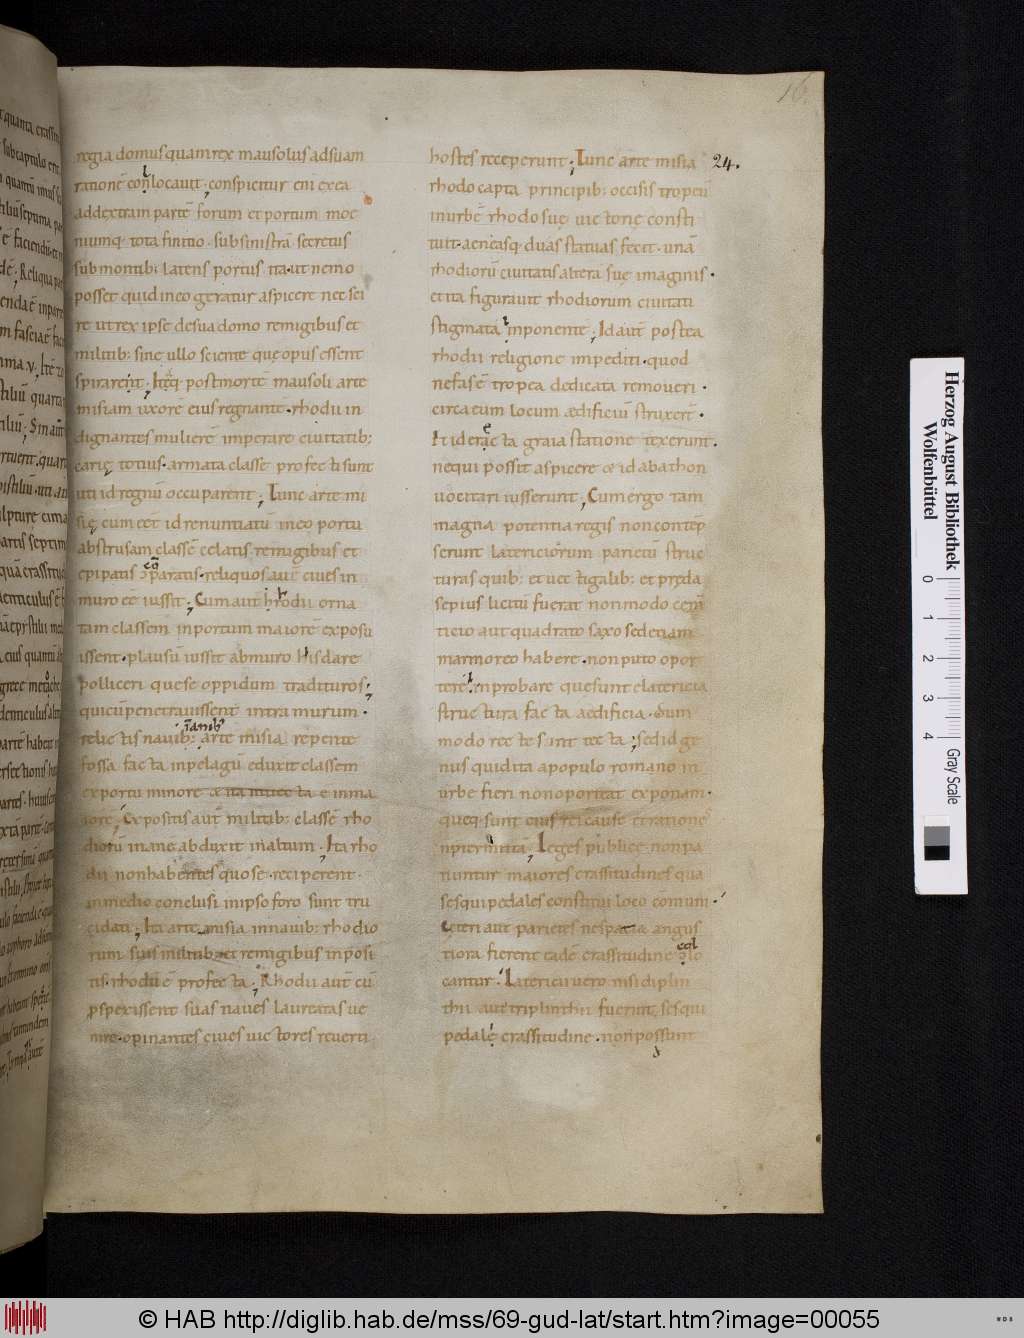 regia domus quam rex mausolus ad suam
rationē conlocauit, conspicitur eni exea
addextram partē forum et portum moe
niumq tota finitio. sub sinistrā secretus
sub montib; latens portus ita.ut nemo
posset quid in eo geratur aspicere nec sci
re ut rex ipse de sua domo remigibus et
militib: sine ullo sciente que opus essent
spirarent, Itaq postmortē mausoli arte
misiam uxorē eius regnantē. rhodii in
dignantes mulierē imperare ciuitatib;
carię totius. armata classe profecti sunt
uti id regnū occuparent, Tunc arte mi
się cum cēt id renuntiatū in eo portu
abstrusam classē celatis remigibus et
epipatis ɔparatis. reliquos aut ciues in
muro cē iussit; Cum aut hrodii orna
tam classem in portum maiorē exposu
issent. plausū iussit abmuro hisdare
polliceri quese oppidum tradituros;
qui cū penetrauissent intra murum.
ianib;
relictis nauib: arte misia repente
fossa facta inpelagū eduxit classem
ex portu minore & ita inuecta e inma
iore, Expositis aut militib: classē rho
diorū inane abduxit inaltum, Ita rho
dii non habentes quo se reciperent.
in medio conclusi inipso foro sunt tru
cidati, Ita arte misia innauib: rhodio
rum suis militib; et remigibus inposi
tis. rhodū ē profecta, Rhodii aut cū
pspexissent suas naues laureatas ue
nire. opinantes ciues uictores reuerti
16.
24.
hostes receperunt; Tunc arte misia
rhodo capta principib; occisis tropeū
inurbē rhodo suę uictorię consti
tuit. aeneasq. duas statuas fecit. unā
rhodiorū ciuitatis altera suę imaginis.
et ita figurauit rhodiorum ciuitati
stigmata inponente; Id aut postea
rhodii religione impediti. quod
nefas ē tropea dedicata remoueri.
circa eum locum ædificiū struxert.
Et id erecta graia statione texerunt.
nequi possit aspicere & id abathon
uocitari iusserunt; Cum ergo tam
magna potentia regis non contēp
serunt latericiorum parietū struc
turas quib: et uectigalib: et preda
sepius licitū fuerat non modo cem̄
ticio aut quadrato saxo sed etiam
marmoreo habere. non puto opor
tere inprobare que sunt elatericia
structura facta aedificia. dum
modo recte sint tecta; sed id ge
nus quid ita a populo romano in
urbe fieri non oporteat exponam.
queq; sunt eius rei cause et ratione
npiermitta, Leges publice non pa
tiuntur maiores crassitudines qua
sesquipedales constitui loco comum.
Ceteri aut parietes ne spatia angus
tiora fierent eadē crassitudine ɔlo
cantur. Latericii uero nisi diplin
thii aut triplinthii fuerint sesqui
pedalē crassitudine. non possunt
Herzog August Bibliothek
Wolfenbüttel
0 1 2 3 4
Gray Scale
© HAB http://diglib.hab.de/mss/69-gud-lat/start.htm?image=00055